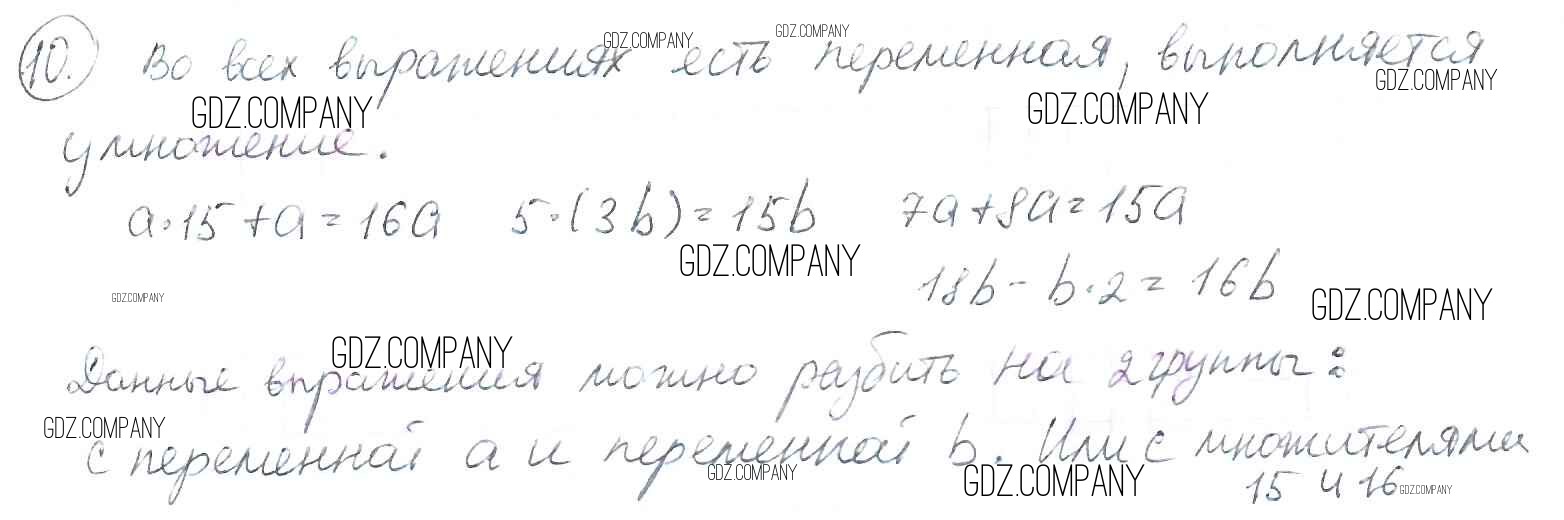 10. Во всех выражениях есть переменная, выполняется
GDZ.COMPANY GDZ.COMPANY GDZ.COMPANY
GDZ.COMPANY GDZ.COMPANY
умножение.
a·15+a=16a 5·(3b)=15b 7a+8a=15a
GDZ.COMPANY
18b-b·2=16b
GDZ.COMPANY GDZ.COMPANY
GDZ.COMPANY
Данные впражения можно разбить на 2 группы:
GDZ.COMPANY
с переменной a и переменной b. Или с множителями
GDZ.COMPANY GDZ.COMPANY GDZ.COMPANY
15 и 16